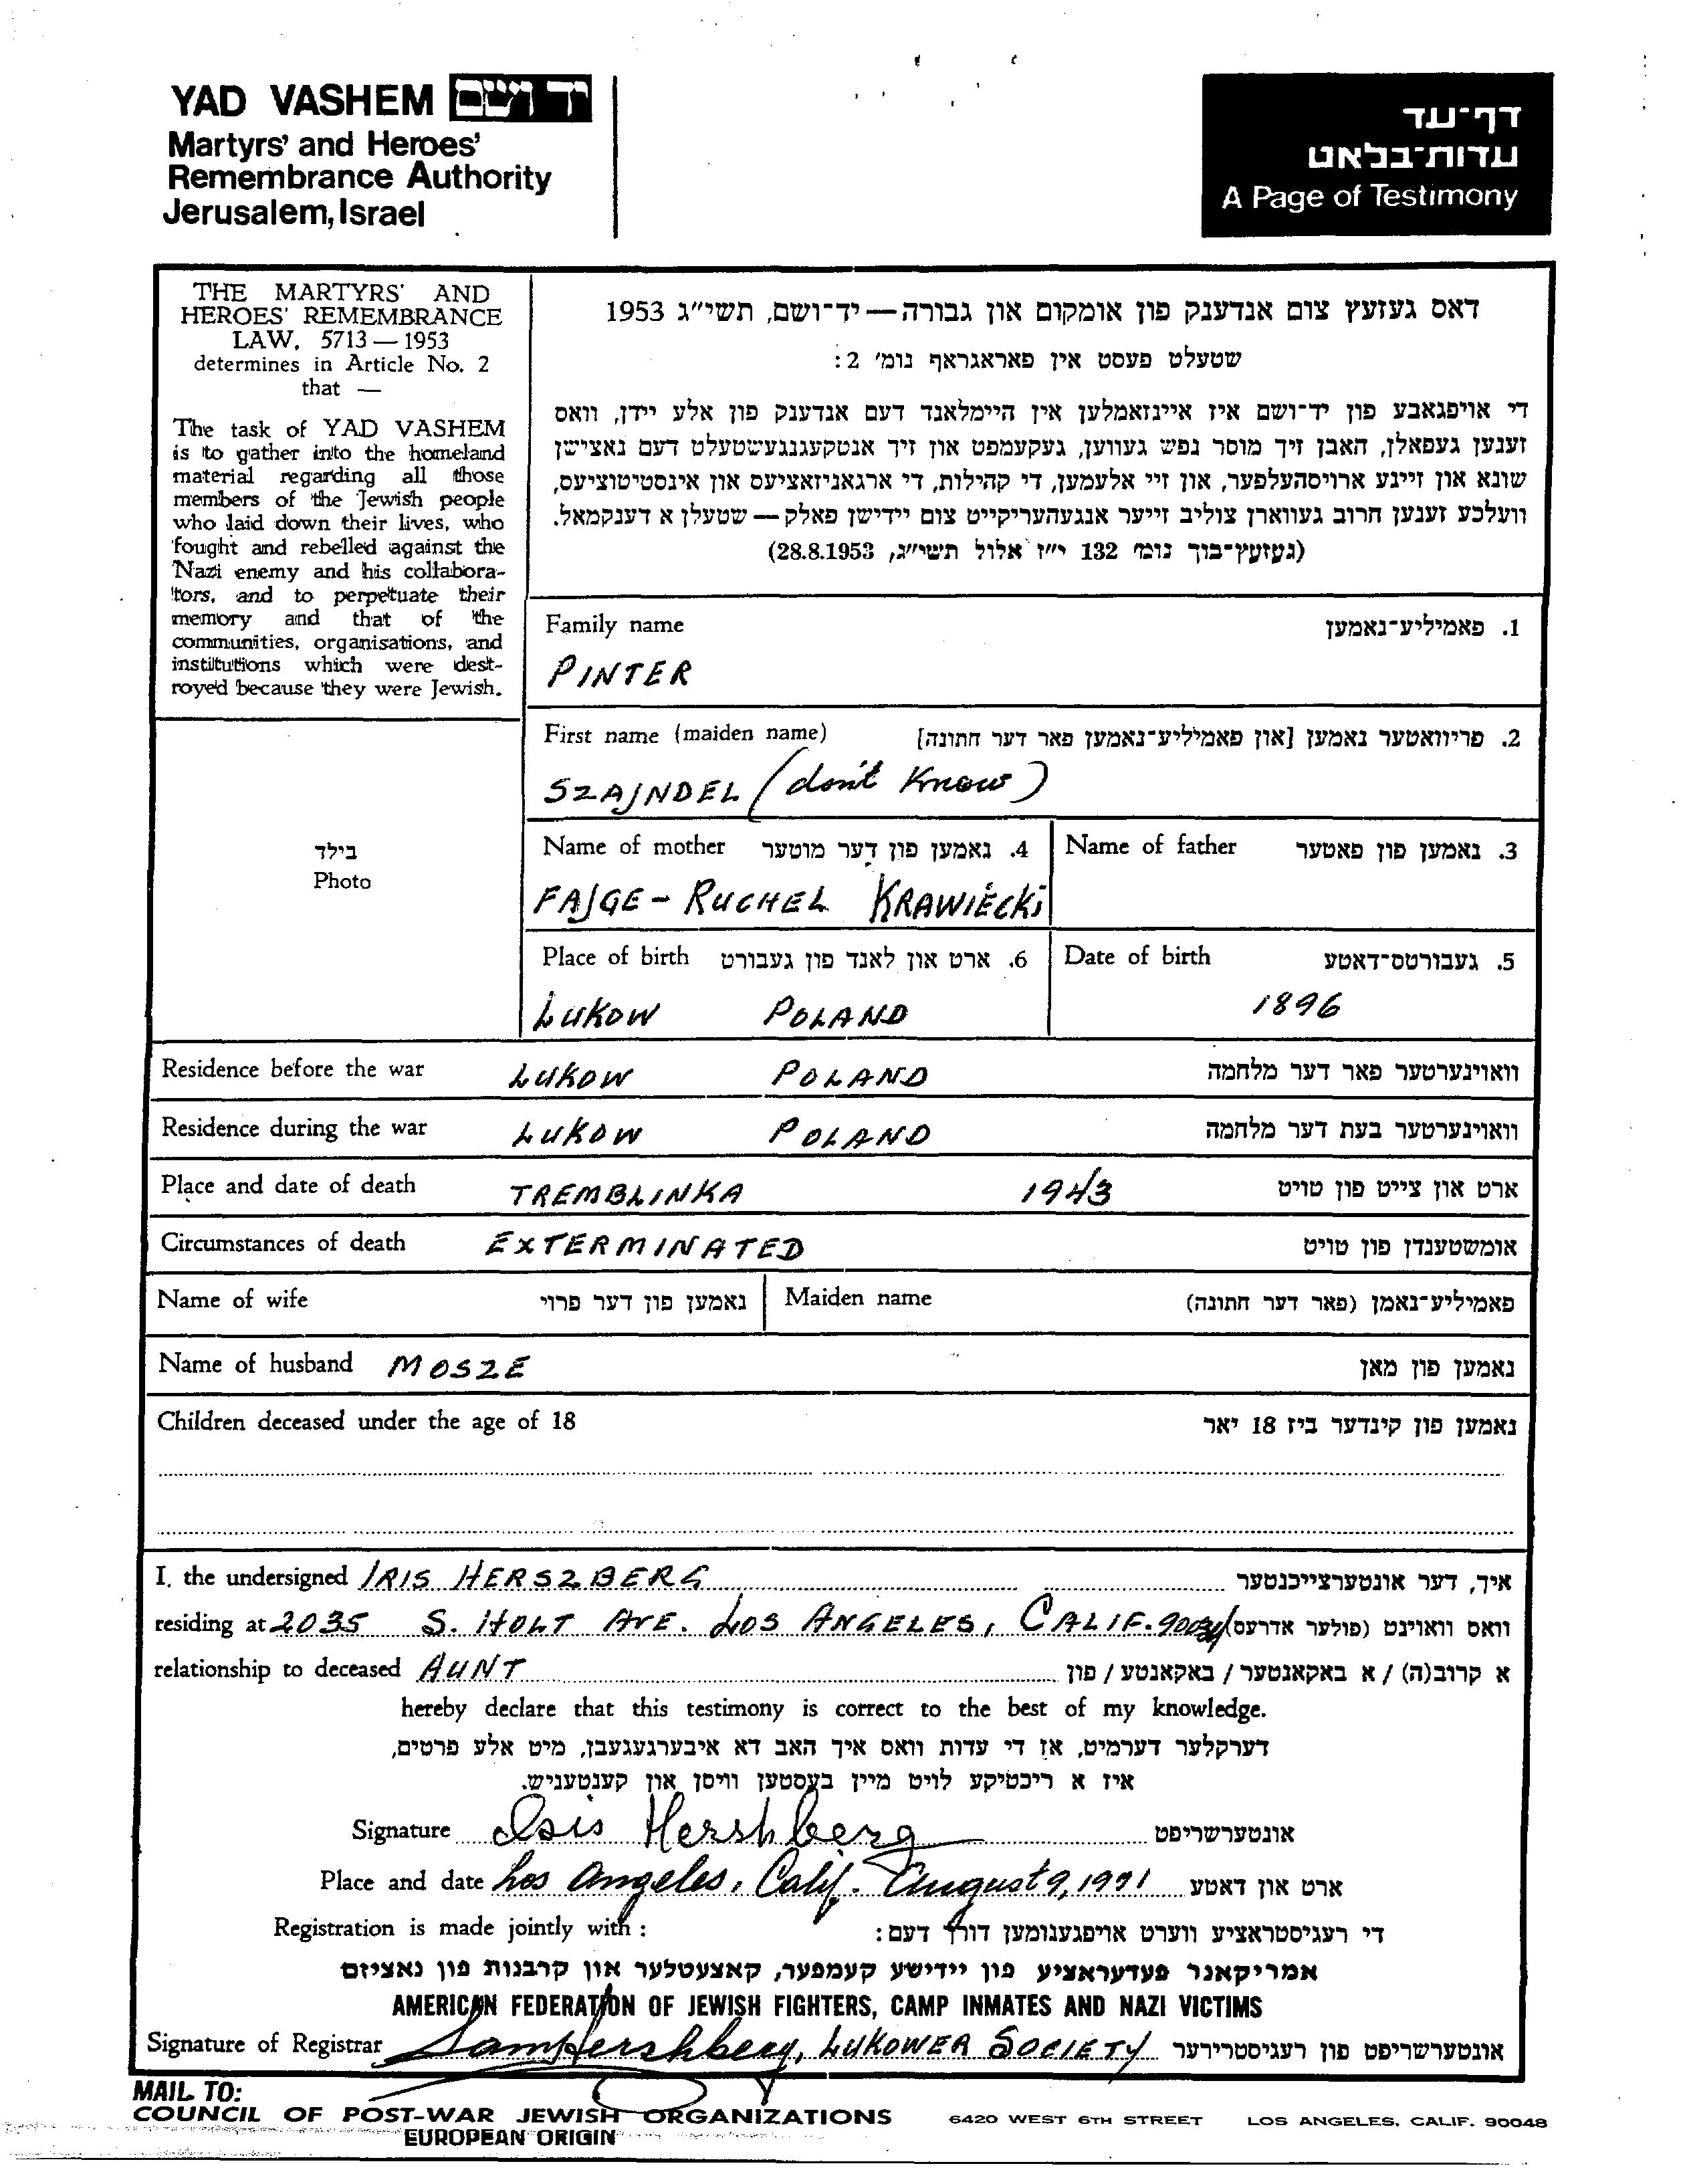 YAD VASHEM יד ושם
Martyrs' and Heroes'
Remembrance Authority
Jerusalem, Israel
דף־עד
עדות־בלאט
A Page of Testimony
THE MARTYRS' AND
HEROES' REMEMBRANCE
LAW, 5713 — 1953
determines in Article No. 2
that —
The task of YAD VASHEM
is to gather into the homeland
material regarding all those
members of the Jewish people
who laid down their lives, who
fought and rebelled against the
Nazi enemy and his collabora-
tors, and to perpetuate their
memory and that of the
communities, organisations, and
institutions which were dest-
royed because they were Jewish.
דאס געזעץ צום אנדענק פון אומקום און גבורה — יד־ושם, תשי״ג 1953
שטעלט פעסט אין פאראגראף נומ׳ 2:
די אויפגאבע פון יד־ושם איז איינזאמלען אין היימלאנד דעם אנדענק פון אלע יידן, וואס
זענען געפאלן, האבן זיך מוסר נפש געווען, געקעמפט און זיך אנטקעגנגעשטעלט דעם נאצישן
שונא און זיינע ארויסהעלפער, און זיי אלעמען, די קהילות, די ארגאניזאציעס און אינסטיטוציעס,
וועלכע זענען חרוב געווארן צוליב זייער אנגעהעריקייט צום יידישן פאלק — שטעלן א דענקמאל.
(געזעץ־בוך נומ׳ 132 י״ז אלול תשי״ג, 28.8.1953)
Family name 1. פאמיליע־נאמען
PINTER
First name (maiden name) 2. פריוואטער נאמען [און פאמיליע־נאמען פאר דער חתונה]
SZAJNDEL (don't know)
Name of mother 4. נאמען פון דער מוטער Name of father 3. נאמען פון פאטער
FAJGE - RUCHEL KRAWIECKI
בילד
Photo
Place of birth 6. ארט און לאנד פון געבורט Date of birth 5. געבורטס־דאטע
LUKOW POLAND 1896
Residence before the war LUKOW POLAND וואוינערטער פאר דער מלחמה
Residence during the war LUKOW POLAND וואוינערטער בעת דער מלחמה
Place and date of death TREMBLINKA 1943 ארט און צייט פון טויט
Circumstances of death EXTERMINATED אומשטענדן פון טויט
Name of wife נאמען פון דער פרוי Maiden name פאמיליע־נאמן (פאר דער חתונה)
Name of husband MOSZE נאמען פון מאן
Children deceased under the age of 18 נאמען פון קינדער ביז 18 יאר
I, the undersigned IRIS HERSZBERG איך, דער אונטערצייכנטער
residing at 2035 S. HOLT AVE. LOS ANGELES, CALIF. 90034 וואס וואוינט (פולער אדרעס)
relationship to deceased AUNT א קרוב(ה) / א באקאנטער / באקאנטע / פון
hereby declare that this testimony is correct to the best of my knowledge.
דערקלער דערמיט, אז די עדות וואס איך האב דא איבערגעגעבן, מיט אלע פרטים,
איז א ריכטיקע לויט מיין בעסטען וויסן און קענטעניש.
Signature Iris Hershberg אונטערשריפט
Place and date Los Angeles, Calif. August 9, 1991 ארט און דאטע
Registration is made jointly with : די רעגיסטראציע ווערט אויפגענומען דורך דעם:
אמריקאנר פעדעראציע פון יידישע קעמפער, קאצעטלער און קרבנות פון נאציזם
AMERICAN FEDERATION OF JEWISH FIGHTERS, CAMP INMATES AND NAZI VICTIMS
Signature of Registrar Sam Hershberg, LUKOWER SOCIETY אונטערשריפט פון רעגיסטרירער
MAIL TO:
COUNCIL OF POST-WAR JEWISH ORGANIZATIONS 6420 WEST 6TH STREET LOS ANGELES, CALIF. 90048
EUROPEAN ORIGIN